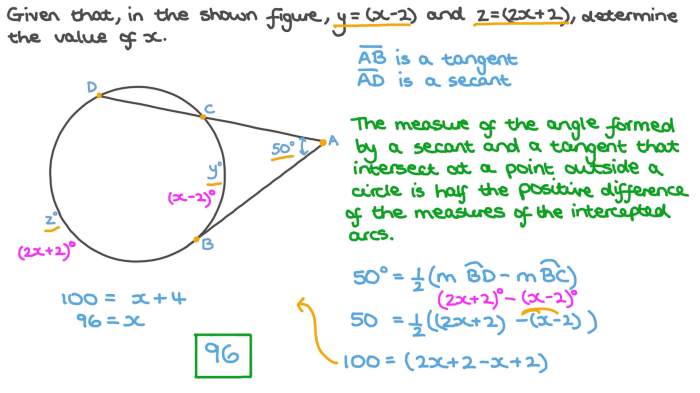 Given that, in the shown figure, y=(x-2) and z=(2x+2), determine
the value of x.
AB is a tangent
AD is a secant
D
C
A
50°
y°
(x-2)°
z°
(2x+2)°
B
The measure of the angle formed
by a secant and a tangent that
intersect at a point outside a
circle is half the positive difference
of the measures of the intercepted
arcs.
50° = ½(m BD - m BC)
(2x+2)° - (x-2)°
50 = ½((2x+2) -(x-2))
100 = (2x+2-x+2)
100 = x+4
96 = x
96